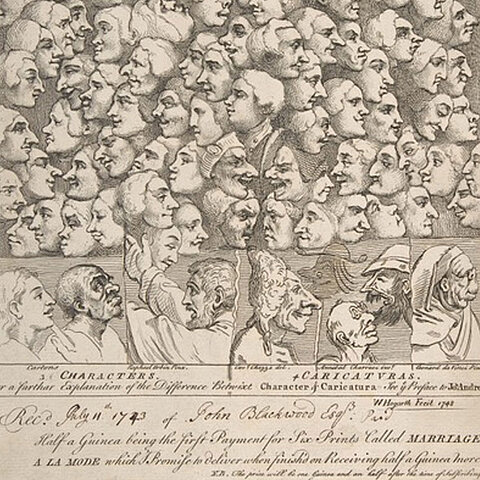 Cartons Raphael Urbin Pinx.
3 CHARACTERS 4 CARICATURAS
r a farthar Explanation of the Difference Betwixt Character & Caricatura See ye Preface to Joh Andre
W Hogarth Fecit 1743
Recd. July 11th 1743 of John Blackwood Esqr.
Half a Guinea being the first Payment for Six Prints Called MARRIAGE
A LA MODE which I Promise to deliver when finish'd on Receiving half a Guinea more
N.B. The price will be one Guinea and an half after the time of Subscribing